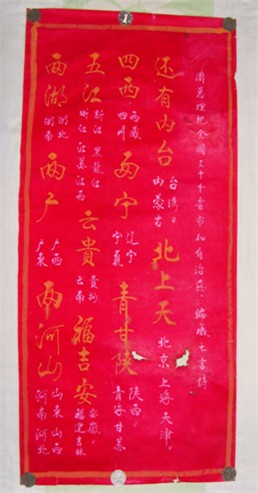 周总理把全国三十个省市和自治区，编成七言诗
两湖 湖北 湖南 两广 广西 广东 两河山 山东山西 河南河北
五江 黑龙江 江苏江西 云貴 貴州 云南 福吉安 安徽。福建吉林
四西 西藏 四川 两宁 辽宁 宁夏 青甘陕 陕西。青海甘肃
还有内台 台湾。内蒙古 北上天 北京上海天津。